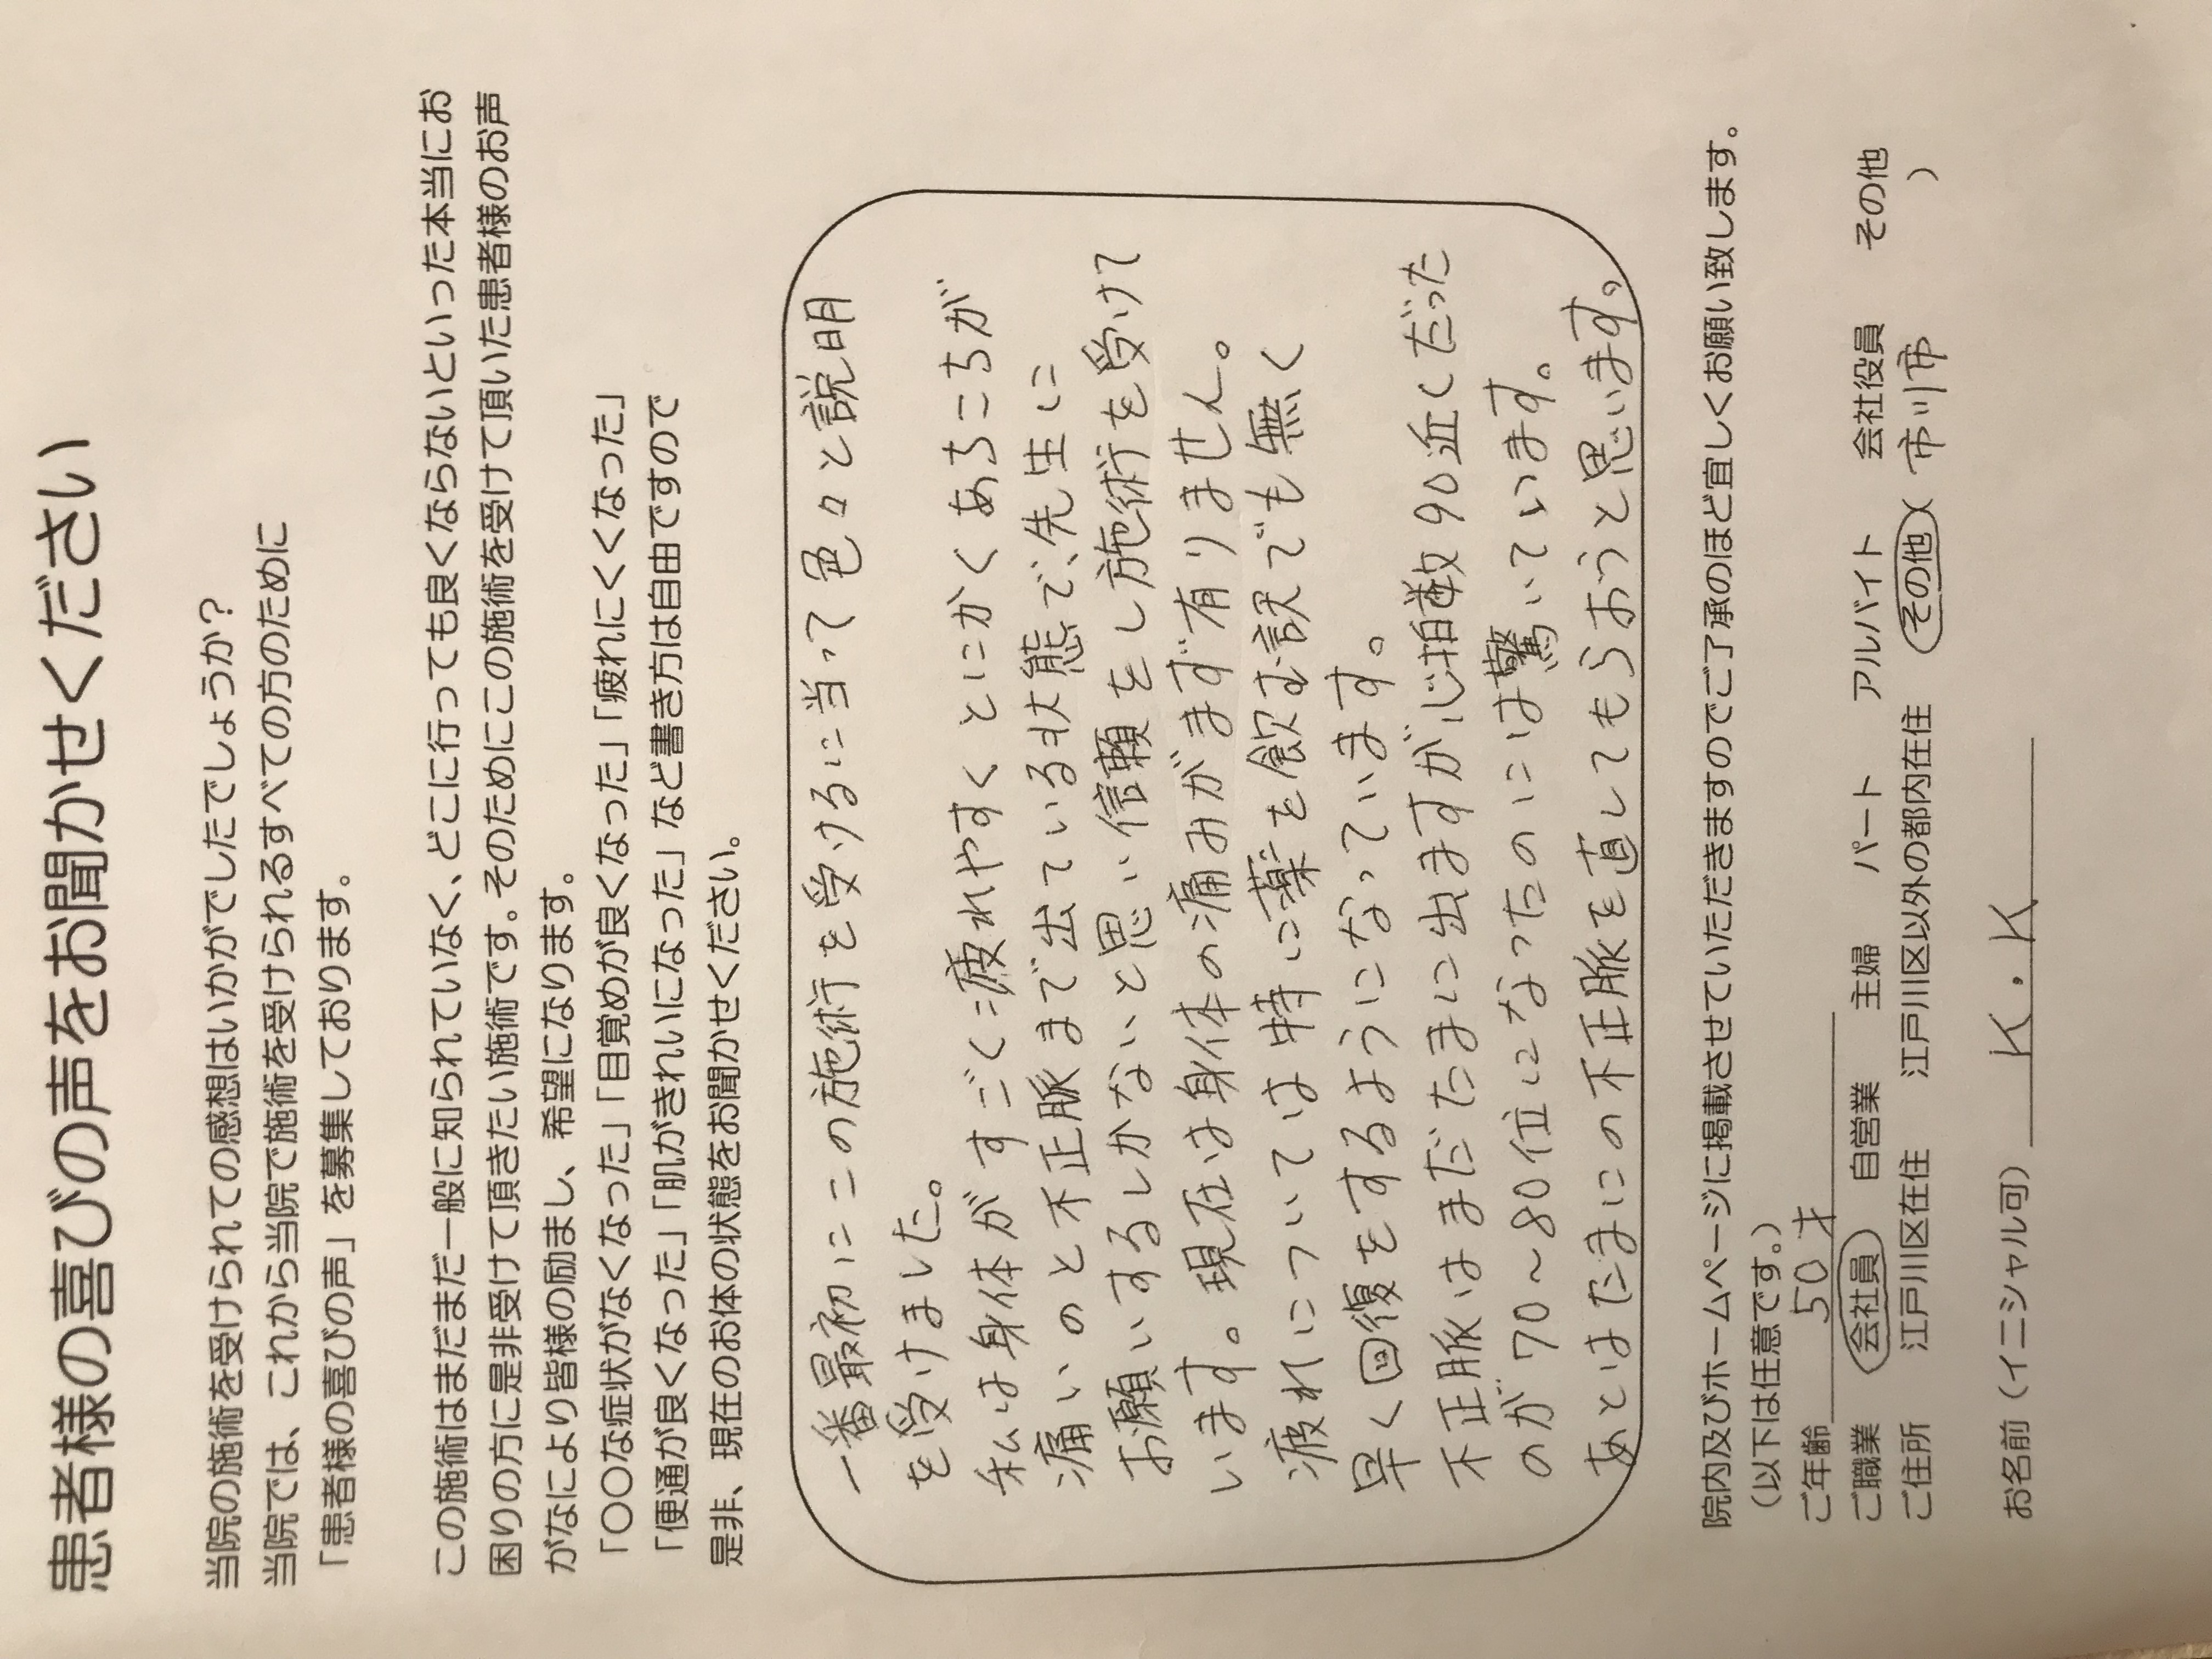 患者様の喜びの声をお聞かせください
当院の施術を受けられての感想はいかがでしたでしょうか？
当院では、これから当院で施術を受けられるすべての方のために
「患者様の喜びの声」を募集しております。
この施術はまだまだ一般に知られていなく、どこに行っても良くならないといった本当にお
困りの方に是非受けて頂きたい施術です。そのためにこの施術を受けて頂いた患者様のお声
がなにより皆様の励まし、希望になります。
「〇〇な症状がなくなった」「目覚めが良くなった」「疲れにくくなった」
「便通が良くなった」「肌がきれいになった」など書き方は自由ですので
是非、現在のお体の状態をお聞かせください。
一番最初にこの施術を受けるに当って色々と説明
を受けました。
私は身体がすごく疲れやすくとにかくあちこちが
痛いのと不正脈まで出ている状態で、先生に
お願いするしかないと思い信頼をし施術を受けて
います。現在は身体の痛みがまず有りません。
疲れについては特に薬を飲む訳でも無く
早く回復をするようになっています。
不正脈はまだたまに出ますが心拍数90近くだった
のが70~80位になったのには驚いています。
あとはたまにの不正脈を直してもらおうと思います。
院内及びホームページに掲載させていただきますのでご了承のほど宜しくお願い致します。
（以下は任意です。）
ご年齢 50才
ご職業 会社員 自営業 主婦 パート アルバイト 会社役員 その他
ご住所 江戸川区在住 江戸川区以外の都内在住 その他（ 市川市 ）
お名前（イニシャル可） K.K